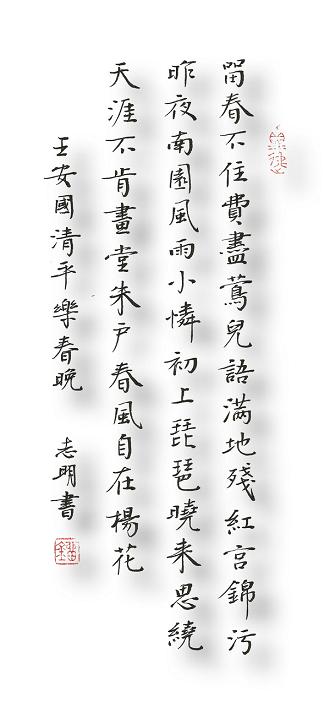 留春不住費盡鶯兒語滿地殘紅宮錦污
昨夜南園風雨小憐初上琵琶曉来思繞
天涯不肯畫堂朱户春風自在楊花
王安國清平樂春晚 志明書